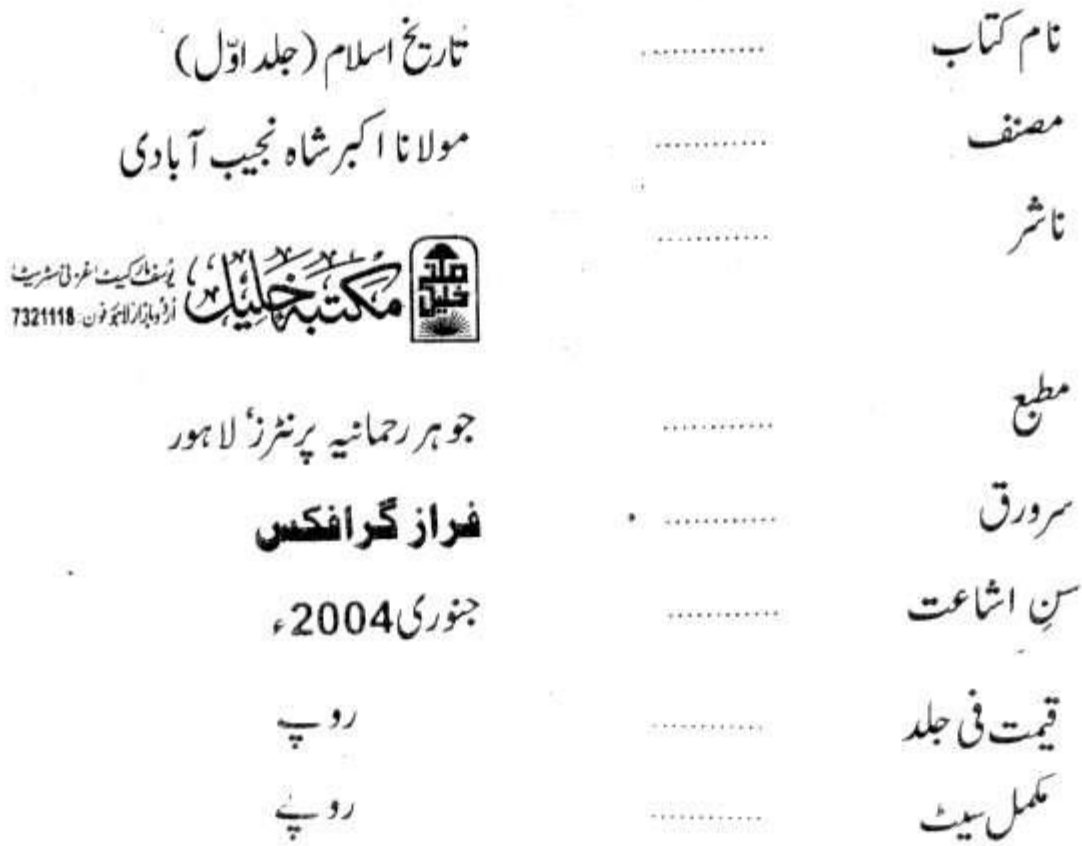 نام کتاب ............ تاریخ اسلام (جلد اوّل)
مصنف ............ مولانا اکبر شاہ نجیب آبادی
ناشر ............ مکتبہ خلیل یوسف مارکیٹ غزنی سٹریٹ
اردو بازار لاہور فون: 7321118
مطبع ............ جوہر رحمانیہ پرنٹرز، لاہور
سرورق ............ فراز گرافکس
سنِ اشاعت ............ جنوری 2004ء
قیمت فی جلد ............ روپے
مکمل سیٹ ............ روپے